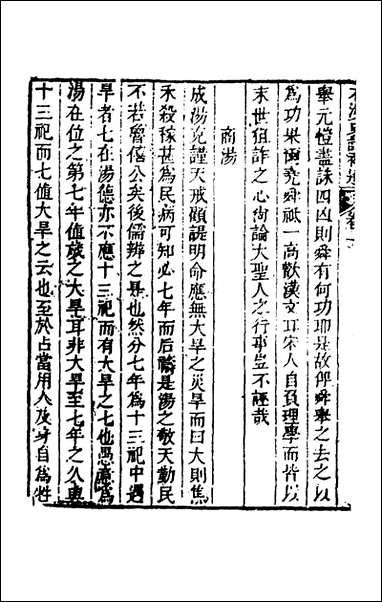 舉元愷盡誅四凶則舜有何功耶是故俾舜舉之去之以
為功果爾堯舜祇一高歡漢文耳宋人自負理學而皆以
末世狙詐之心尙論大聖人之行事豈不誣哉
商湯
成湯克謹天戒顧諟明命應無大旱之災旱而曰大則焦
禾殺稼甚為民病可知必七年而后禱是湯之敬天勤民
不若魯僖公矣後儒辨之是也然分七年為十三祀中遇
旱者七在湯德亦不應十三祀而有大旱之七也愚意為
湯在位之第七年值歲之大旱耳非大旱至七年之久與
十三祀而七值大旱之云也至於占當用人及身自為牲